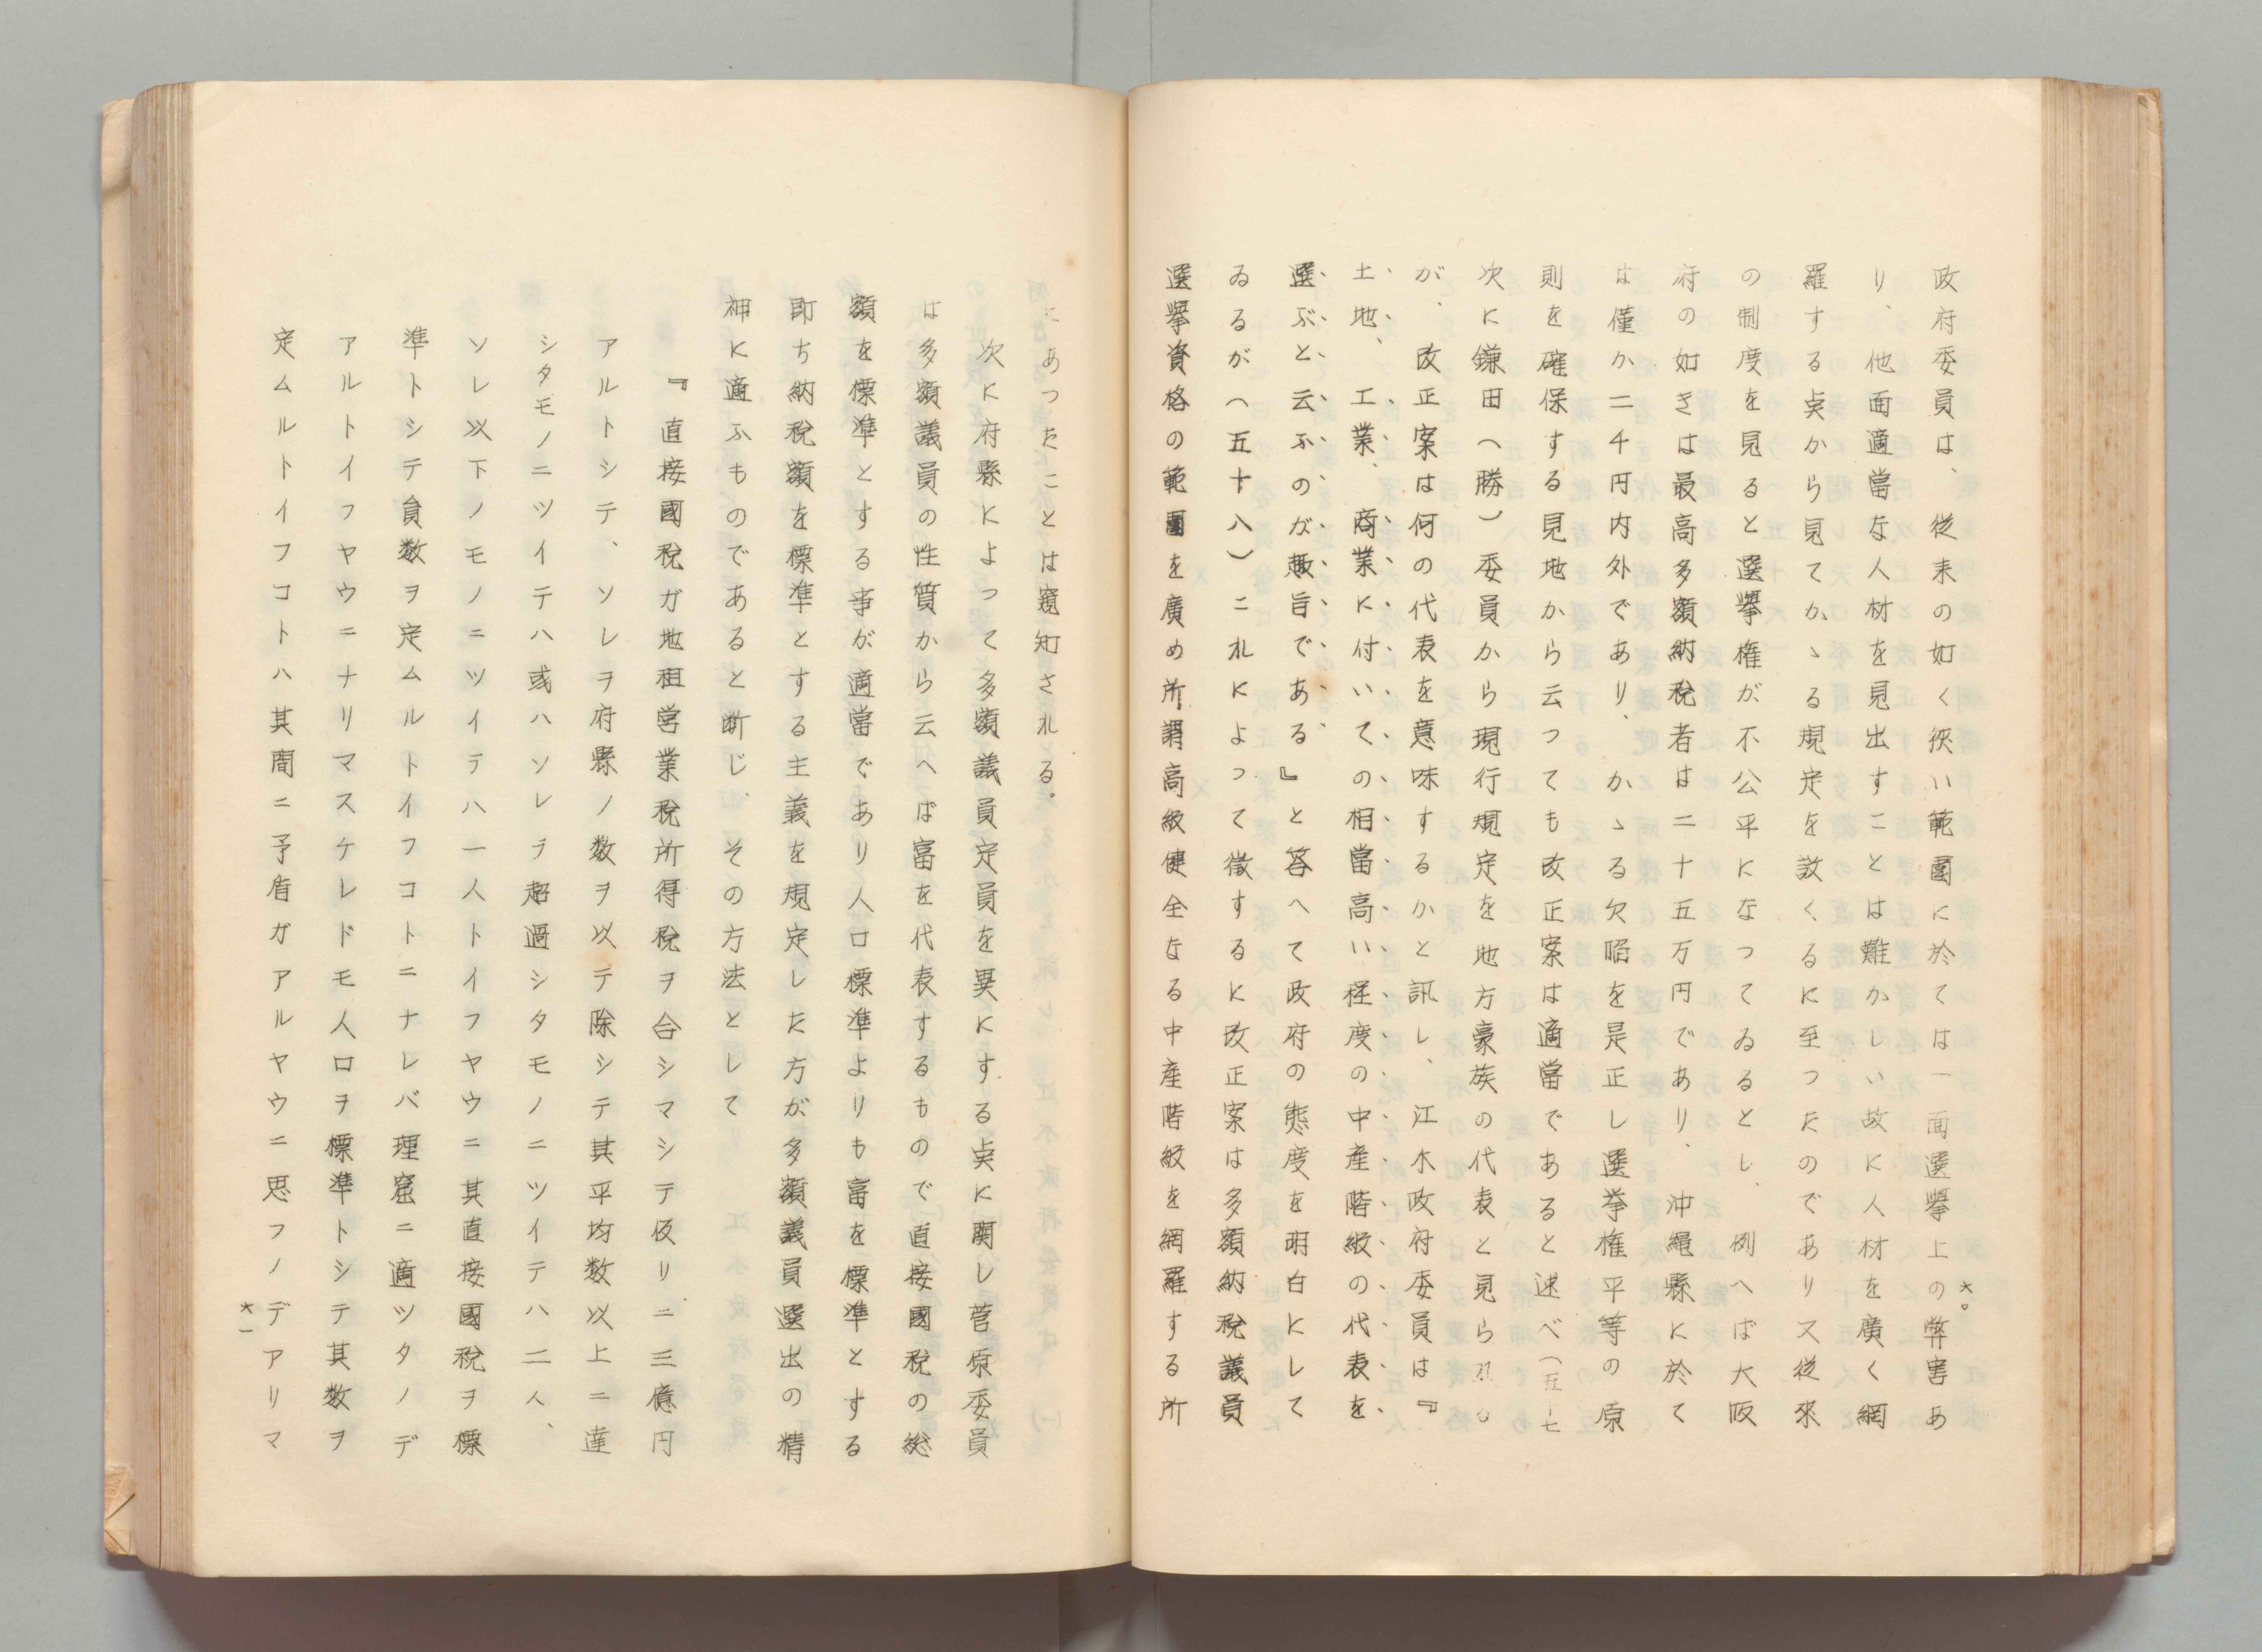 政府委員は、従来の如く狹い範圍に於ては一面選擧上の弊害あ
り、他面適當な人材を見出すことは難かしい故に人材を廣く網
羅する点から見てかゝる規定を設くるに至つたのであり又從來
の制度を見ると選擧権が不公平になつてゐるとし、例へば大阪
府の如きは最高多額納税者は二十五万円であり、沖縄縣に於て
は僅か二千円内外であり、かゝる欠陥を是正し選挙権平等の原
則を確保する見地から云つても改正案は適當であると述べ（五七
次に鎌田（勝）委員から現行規定を地方豪族の代表と見られる
が、改正案は何の代表を意味するかと訊し、江木政府委員は『
土地、工業、商業に付いての相當高い程度の中産階級の代表を
選ぶと云ふのが趣旨である』と答へて政府の態度を明白にして
ゐるが（五十八）これによつて徴するに改正案は多額納税議員
選擧資格の範圍を廣め所謂高級健全なる中産階級を網羅する所
にあつたことは窺知される。
次に府縣によつて多額議員定員を異にする点に関し菅原委員
は多額議員の性質から云へば富を代表するもので直接國税の総
額を標準とする事が適當であり人口標準よりも富を標準とする
即ち納税額を標準とする主義を規定した方が多額議員選出の精
神に適ふものであると断じ、その方法として
『直接國税ガ地租営業税所得税ヲ合シマシテ仮リニ三億円
アルトシテ、ソレヲ府縣ノ数ヲ以テ除シテ其平均数以上ニ達
シタモノニツイテハ或ハソレヲ超過シタモノニツイテハ二人、
ソレ以下ノモノニツイテハ一人トイフヤウニ其直接國税ヲ標
準トシテ員数ヲ定ムルトイフコトニナレバ理窟ニ適ツタノデ
アルトイフヤウニナリマスケレドモ人口ヲ標準トシテ其数ヲ
定ムルトイフコトハ其間ニ予盾ガアルヤウニ思フノデアリマ